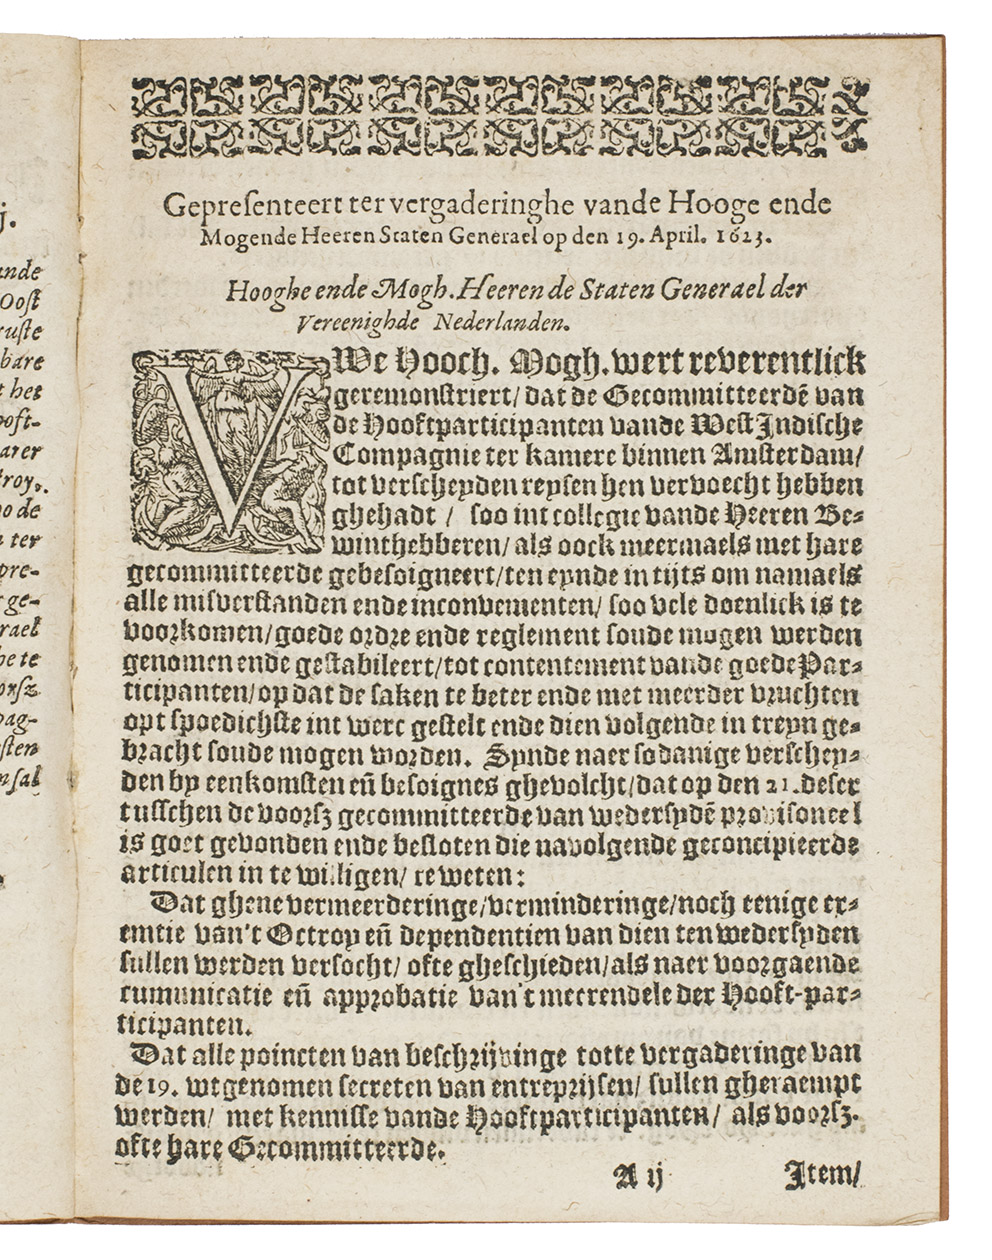 j.
ande
Oost
ruste
bare
t het
ooft-
arer
troy,.
no de
n ter
pre-
r ge-
rael
he te
orsz
pag-
sten
nsal
Gepresenteert ter vergaderinghe vande Hooge ende
Mogende Heeren Staten Generael op den 19. April. 1623.
Hooghe ende Mogh. Heeren de Staten Generael der
Vereenighde Nederlanden.
VWe Hooch. Mogh. wert reverentlick
geremonstriert/ dat de Gecommitteerdē van
de Hooftparticipanten vande West Indische
Compagnie ter kamere binnen Amsterdam/
tot verscheyden reysen hen vervoecht hebben
ghehadt / soo int collegie vande Heeren Be-
winthebberen/ als oock meermaels met hare
gecommitteerde gebesoigneert/ ten eynde in tijts om namaels
alle misverstanden ende inconvementen/ soo vele doenlick is te
voorkomen/ goede ordre ende reglement soude mogen werden
genomen ende gestabileert/ tot contentement vande goede Par-
ticipanten/ op dat de saken te beter ende met meerder vruchten
opt spoedichste int werc gestelt ende dien volgende in treyn ge-
bracht soude mogen worden. Synde naer sodanige verschey-
den by eenkomsten eñ besoignes ghevolcht/ dat op den 21. deser
tusschen de voorsz gecommitteerde van wedersydē provisoneel
is goet gevonden ende besloten die navolgende geconcipieerde
articulen in te willigen/ te weten:
Dat ghene vermeerderinge/ verminderinge/ noch eenige ex-
emtie van't Octroy eñ dependentien van dien ten wedersyden
sullen werden versocht/ ofte gheschieden/ als naer voorgaende
cumunicatie eñ approbatie van't meerendele der Hooft-par-
ticipanten.
Dat alle poincten van beschrijvinge totte vergaderinge van
de 19. wtgenomen secreten van entreprijsen/ sullen gheraempt
werden/ met kennisse vande Hooftparticipanten/ als voorsz.
ofte hare Gecommitteerde.
A ij Item/